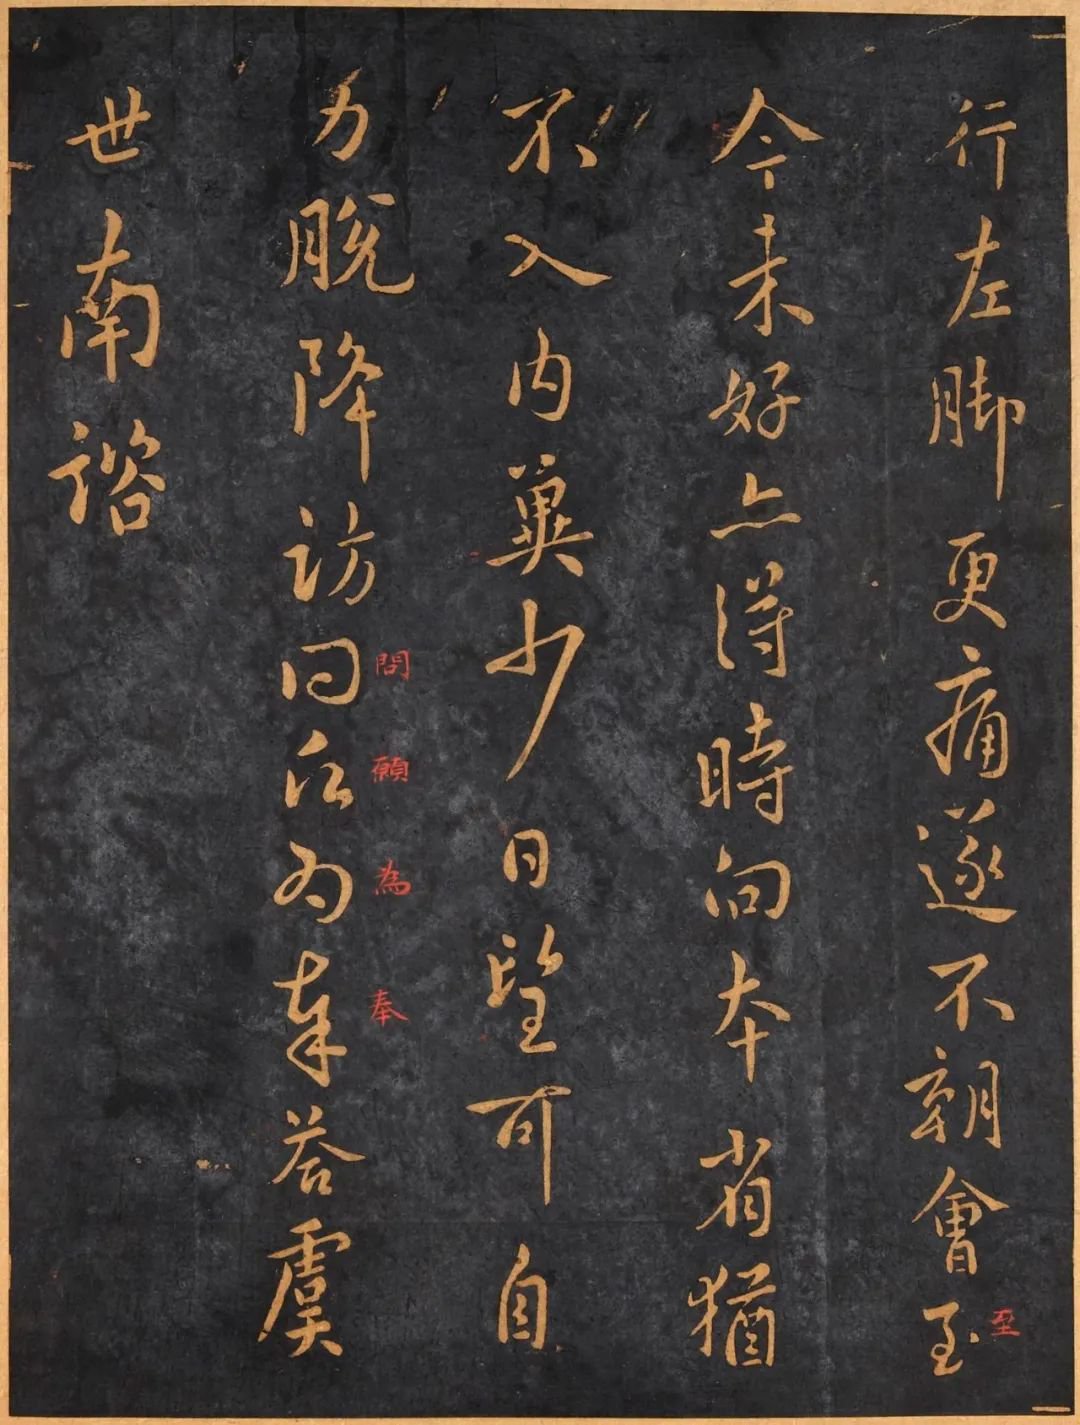 行左脚更痛遂不朝會至
今未好亦得時向本省猶
不入內冀少日望可自
力脫降訪問願為奉荅虞
世南諮
至
問
願
為
奉